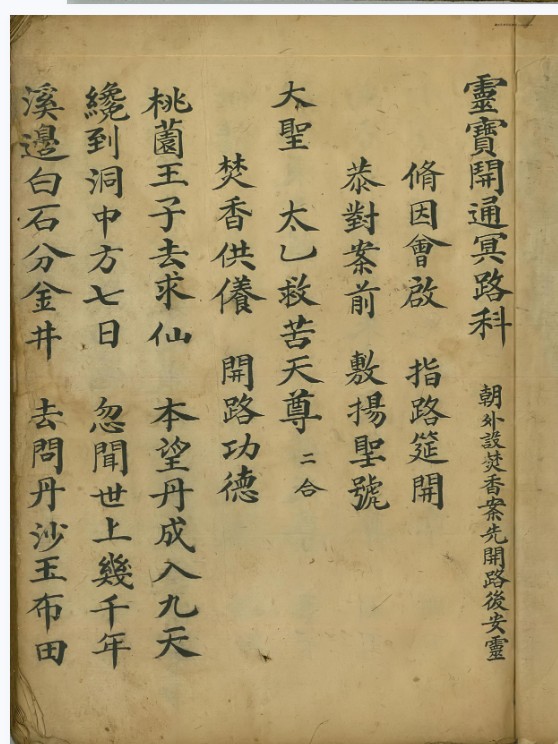 靈寶開通冥路科 朝外設焚香案先開路後安靈
脩因會啟 指路筵開
恭對案前 敷揚聖號
大聖 太乙救苦天尊 二合
焚香供養 開路功德
桃園王子去求仙 本望丹成入九天
纔到洞中方七日 忽聞世上幾千年
溪邊白石分金井 去問丹沙玉布田